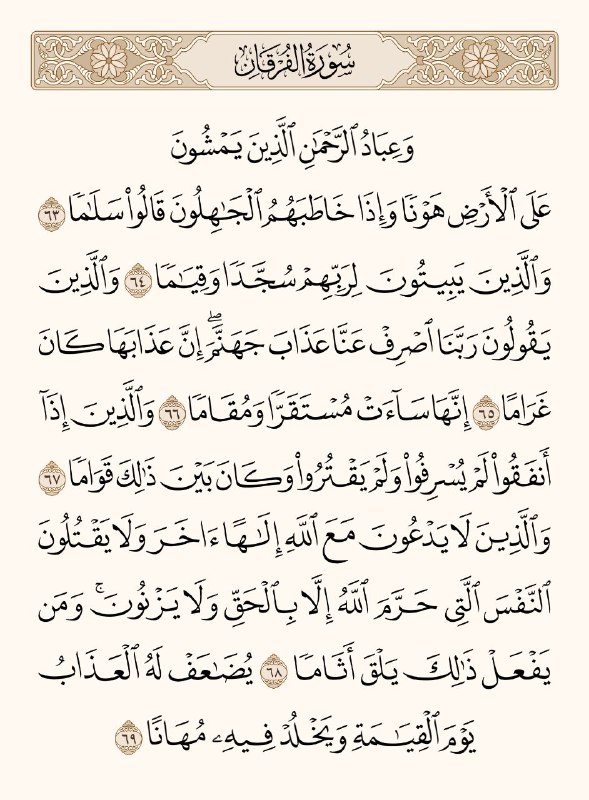 سُورَةُ الفُرْقَانِ
وَعِبَادُ ٱلرَّحْمَٰنِ ٱلَّذِينَ يَمْشُونَ
عَلَى ٱلْأَرْضِ هَوْنًا وَإِذَا خَاطَبَهُمُ ٱلْجَٰهِلُونَ قَالُوا۟ سَلَٰمًا ٦٣
وَٱلَّذِينَ يَبِيتُونَ لِرَبِّهِمْ سُجَّدًا وَقِيَٰمًا ٦٤ وَٱلَّذِينَ
يَقُولُونَ رَبَّنَا ٱصْرِفْ عَنَّا عَذَابَ جَهَنَّمَ ۖ إِنَّ عَذَابَهَا كَانَ
غَرَامًا ٦٥ إِنَّهَا سَآءَتْ مُسْتَقَرًّا وَمُقَامًا ٦٦ وَٱلَّذِينَ إِذَآ
أَنفَقُوا۟ لَمْ يُسْرِفُوا۟ وَلَمْ يَقْتُرُوا۟ وَكَانَ بَيْنَ ذَٰلِكَ قَوَامًا ٦٧
وَٱلَّذِينَ لَا يَدْعُونَ مَعَ ٱللَّهِ إِلَٰهًا ءَاخَرَ وَلَا يَقْتُلُونَ
ٱلنَّفْسَ ٱلَّتِى حَرَّمَ ٱللَّهُ إِلَّا بِٱلْحَقِّ وَلَا يَزْنُونَ ۚ وَمَن
يَفْعَلْ ذَٰلِكَ يَلْقَ أَثَامًا ٦٨ يُضَٰعَفْ لَهُ ٱلْعَذَابُ
يَوْمَ ٱلْقِيَٰمَةِ وَيَخْلُدْ فِيهِۦ مُهَانًا ٦٩